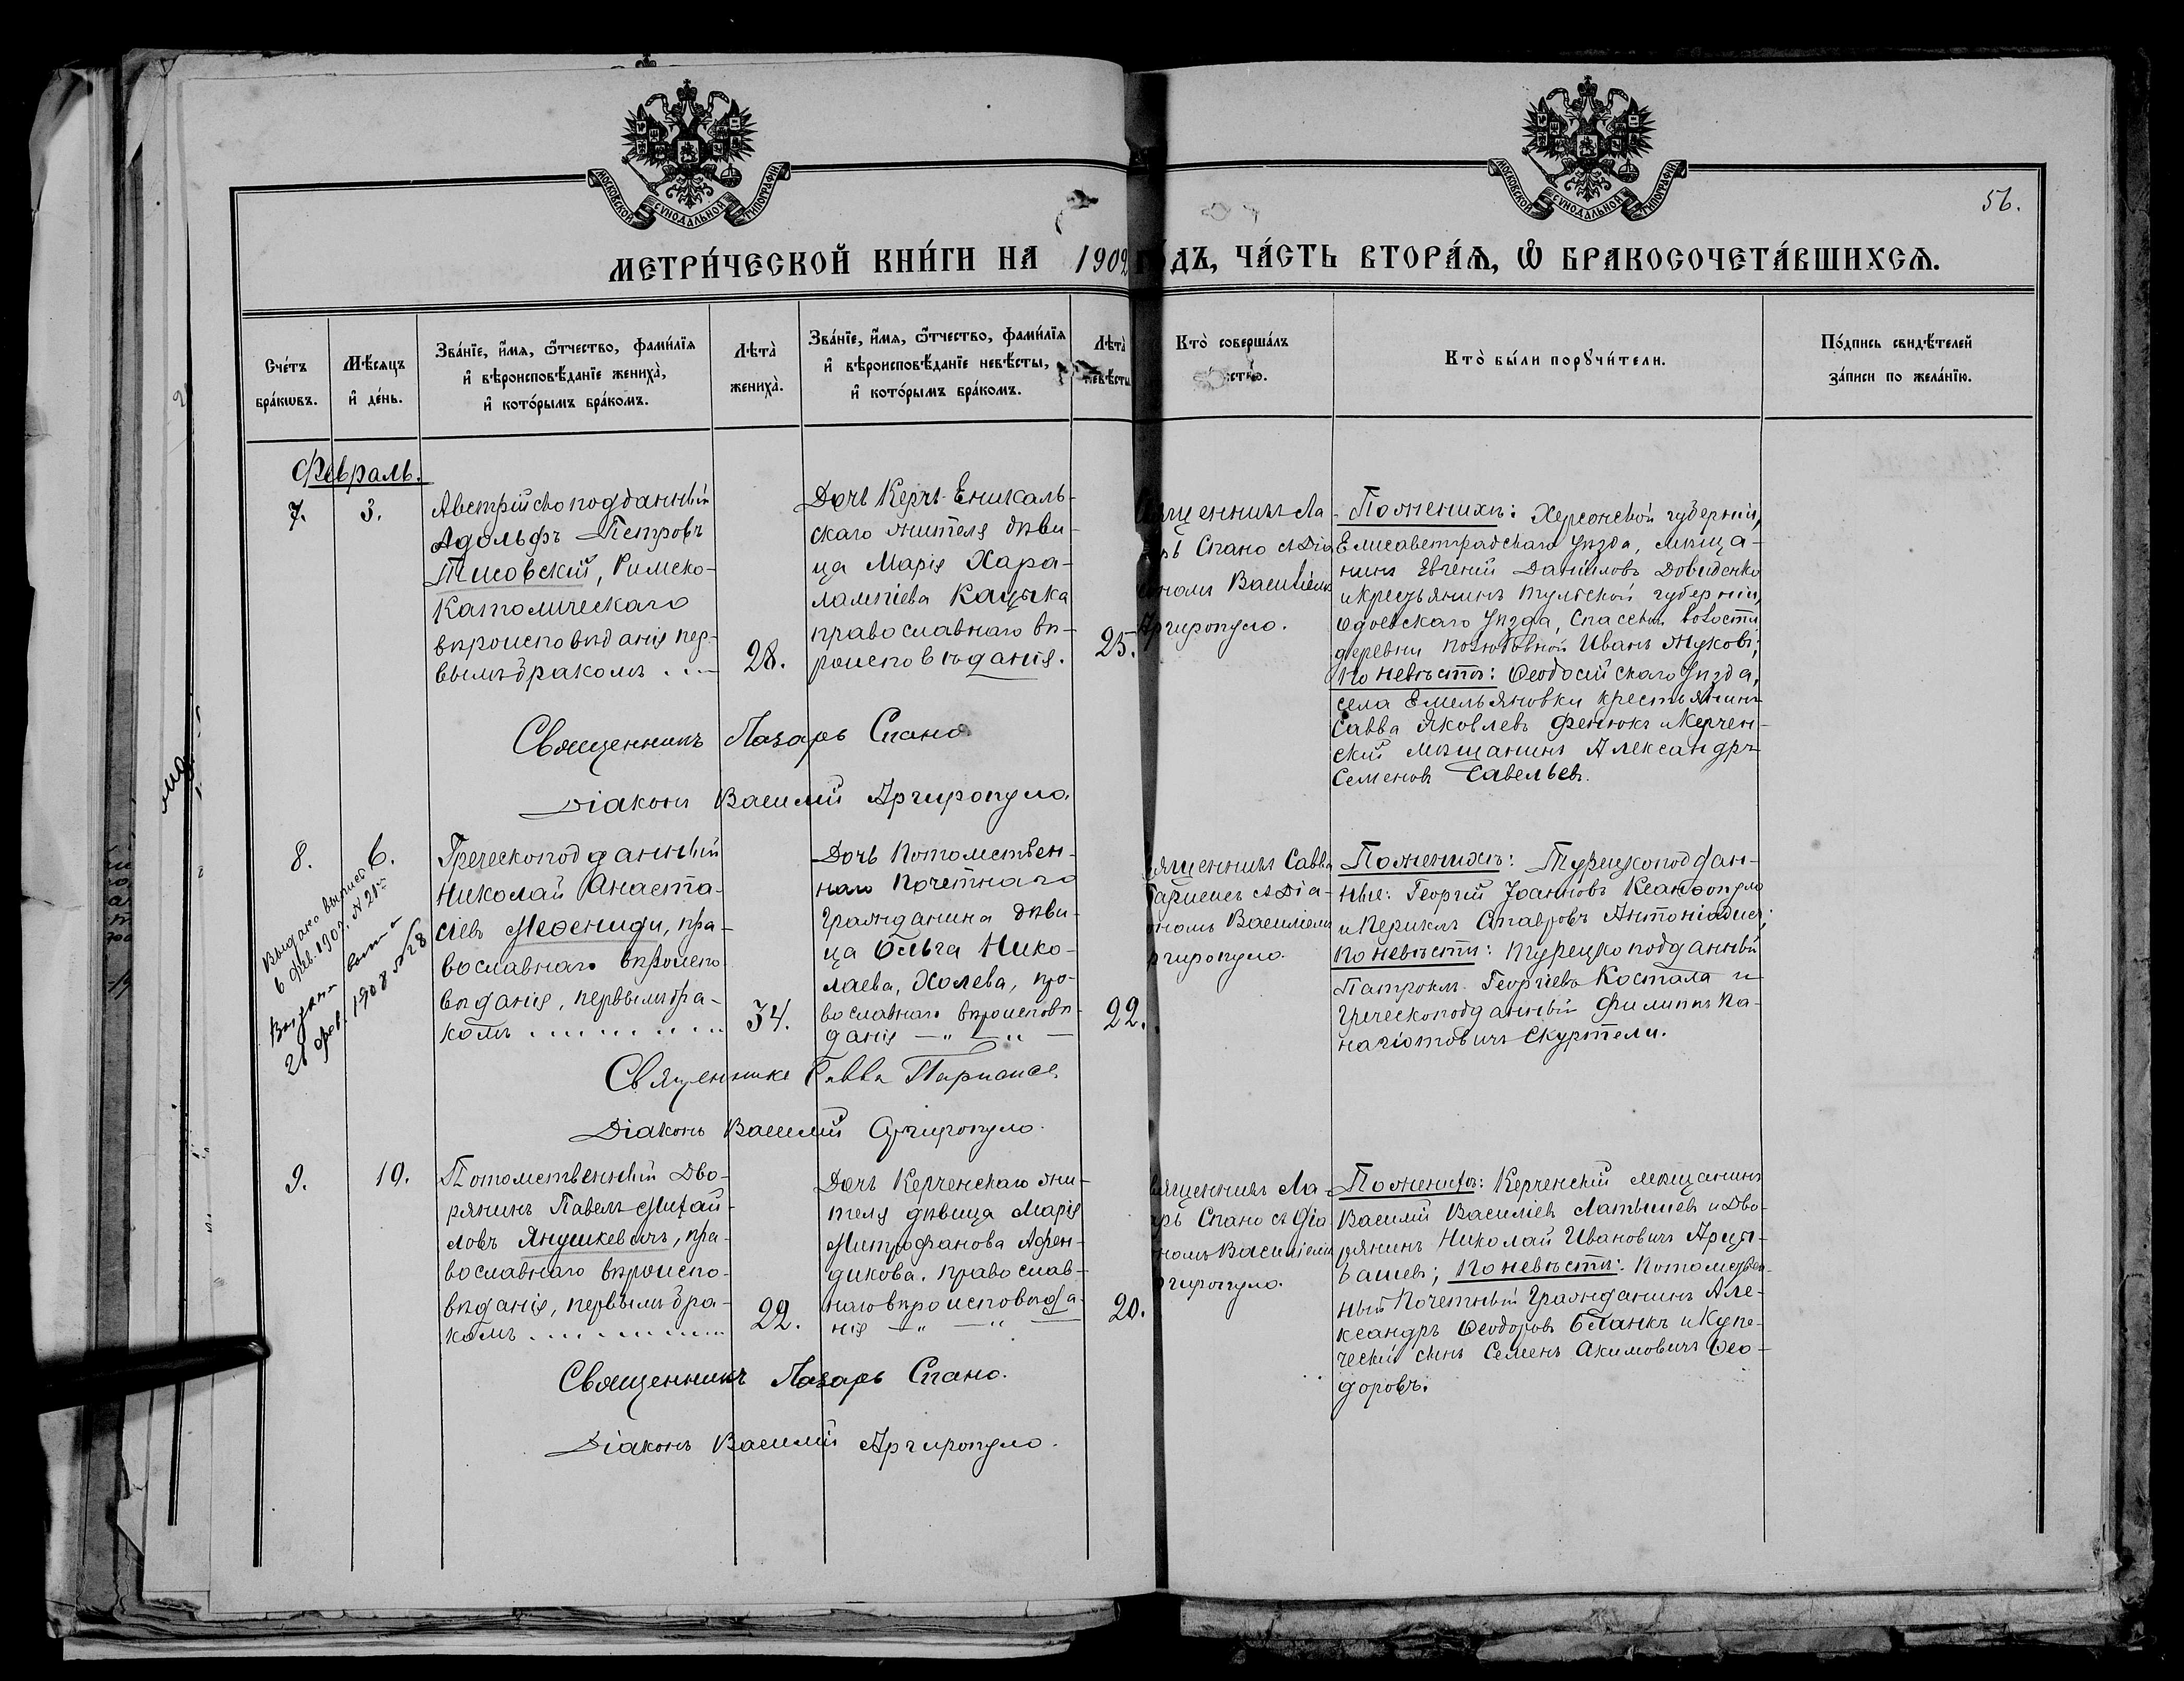 МОСКОВСКОЙ СѴНОДАЛЬНОЙ ТИПОГРАФІИ
МОСКОВСКОЙ СѴНОДАЛЬНОЙ ТИПОГРАФІИ
56.
МЕТРИ́ЧЕСКОЙ КНИ́ГИ НА 1902 ГО́ДЪ, ЧА́СТЬ ВТОРА́Ѧ, Ѡ҆ БРАКОСОЧЕТА́ВШИХСѦ.
Сче́тъ бра́кѡвъ.
Мѣ́сѧцъ и҆ де́нь.
Зва́нїе, и҆́мѧ, ѻ҆́тчество, фами́лїѧ
и҆ вѣроисповѣ́данїе жениха̀,
и҆ кото́рымъ бра́комъ.
Лѣта̀ жениха̀.
Зва́нїе, и҆́мѧ, ѻ҆́тчество, фами́лїѧ
и҆ вѣроисповѣ́данїе невѣ́сты,
и҆ кото́рымъ бра́комъ.
Лѣта̀ невѣ́сты
Кто̀ соверша́лъ
Кто̀ бы́ли порꙋчи́тели.
По́дпись свидѣ́телей
за́писи по жела́нїю.
Февраль.
7.
3.
Австрійскоподданный
Адольфъ Петровъ
Тисовскій, Римско-
Католическаго
вѣроисповѣданія пер-
вымъ бракомъ . . —
28.
Дочь Керчь-Еникаль-
скаго жителя дѣви-
ца Марія Хара-
лампіева Кацыка
православнаго вѣ-
роисповѣданія.
25.
щенникъ Ла-
ръ Спано съ Діа
ономъ Василіемъ
Аргиропуло.
По женихѣ: Херсонской губерніи,
Елисаветградскаго уѣзда, мѣща-
нинъ Евгеній Даніиловъ Довиденко
и крестьянинъ Тульской губерніи,
Одоевскаго уѣзда, Спасской волости
деревни Иванъ Жуковъ;
По невѣстѣ: Ѳеодосійскаго уѣзда,
села Емельяновки крестьянинъ
Савва Яковлевъ Фенюкъ и Керчен-
скій мѣщанинъ Александръ
Семеновъ Савельевъ.
Священникъ Лазарь Спано
Діаконъ Василій Аргиропуло.
8.
6.
Выдана выпись
6 фев. 1902. N 21
Выдана
26 фев. 1908 N 28
Греческоподданный
Николай Анаста-
сіевъ Меѳениди, пра-
вославнаго вѣроиспо-
вѣданія, первымъ бра-
комъ . . . . . . . . .
34.
Дочь Потомствен-
наго Почетнаго
Гражданина дѣви-
ца Ольга Нико-
лаева, Холева, пра-
вославнаго вѣроисповѣ-
данія — " — " —
22.
ященникъ Савва
съ Діа-
ономъ Василіемъ
ргиропуло.
По женихѣ: Турецкоподдан-
ные: Георгій Іоанновъ Ксанѳопуло
и Периклъ Ставровъ Антоніадисъ;
По невѣстѣ: Турецкоподданный
Патроклъ Георгіевъ Костала и
Греческоподданный Филиппъ Па-
нагіотовичъ Скуртели.
Священникъ Савва
Діаконъ Василій Аргиропуло.
9.
10.
Потомственный Дво-
рянинъ Павелъ Михай-
ловъ Янушкевичъ, пра-
вославнаго вѣроиспо-
вѣданія, первымъ бра-
комъ . . . . . . . . .
22.
Дочь Керченскаго жи-
теля дѣвица Марія
Митрофанова Афен-
дикова, православ-
наго вѣроисповѣда-
нія — " — " —
20.
ященникъ Ла-
арь Спано съ Діа
ономъ Василіемъ
ргиропуло.
По женихѣ: Керченскій мѣщанинъ
Василій Василіевъ Латышевъ и Дво-
рянинъ Николай Ивановичъ Арцы-
башевъ; По невѣстѣ: Потомствен-
ный Почетный Гражданинъ Але-
ксандръ Ѳеодоровъ Бланкъ и Купе-
ческій сынъ Семенъ Акимовичъ Ѳео-
доровъ.
Священникъ Лазарь Спано.
Діаконъ Василій Аргиропуло.